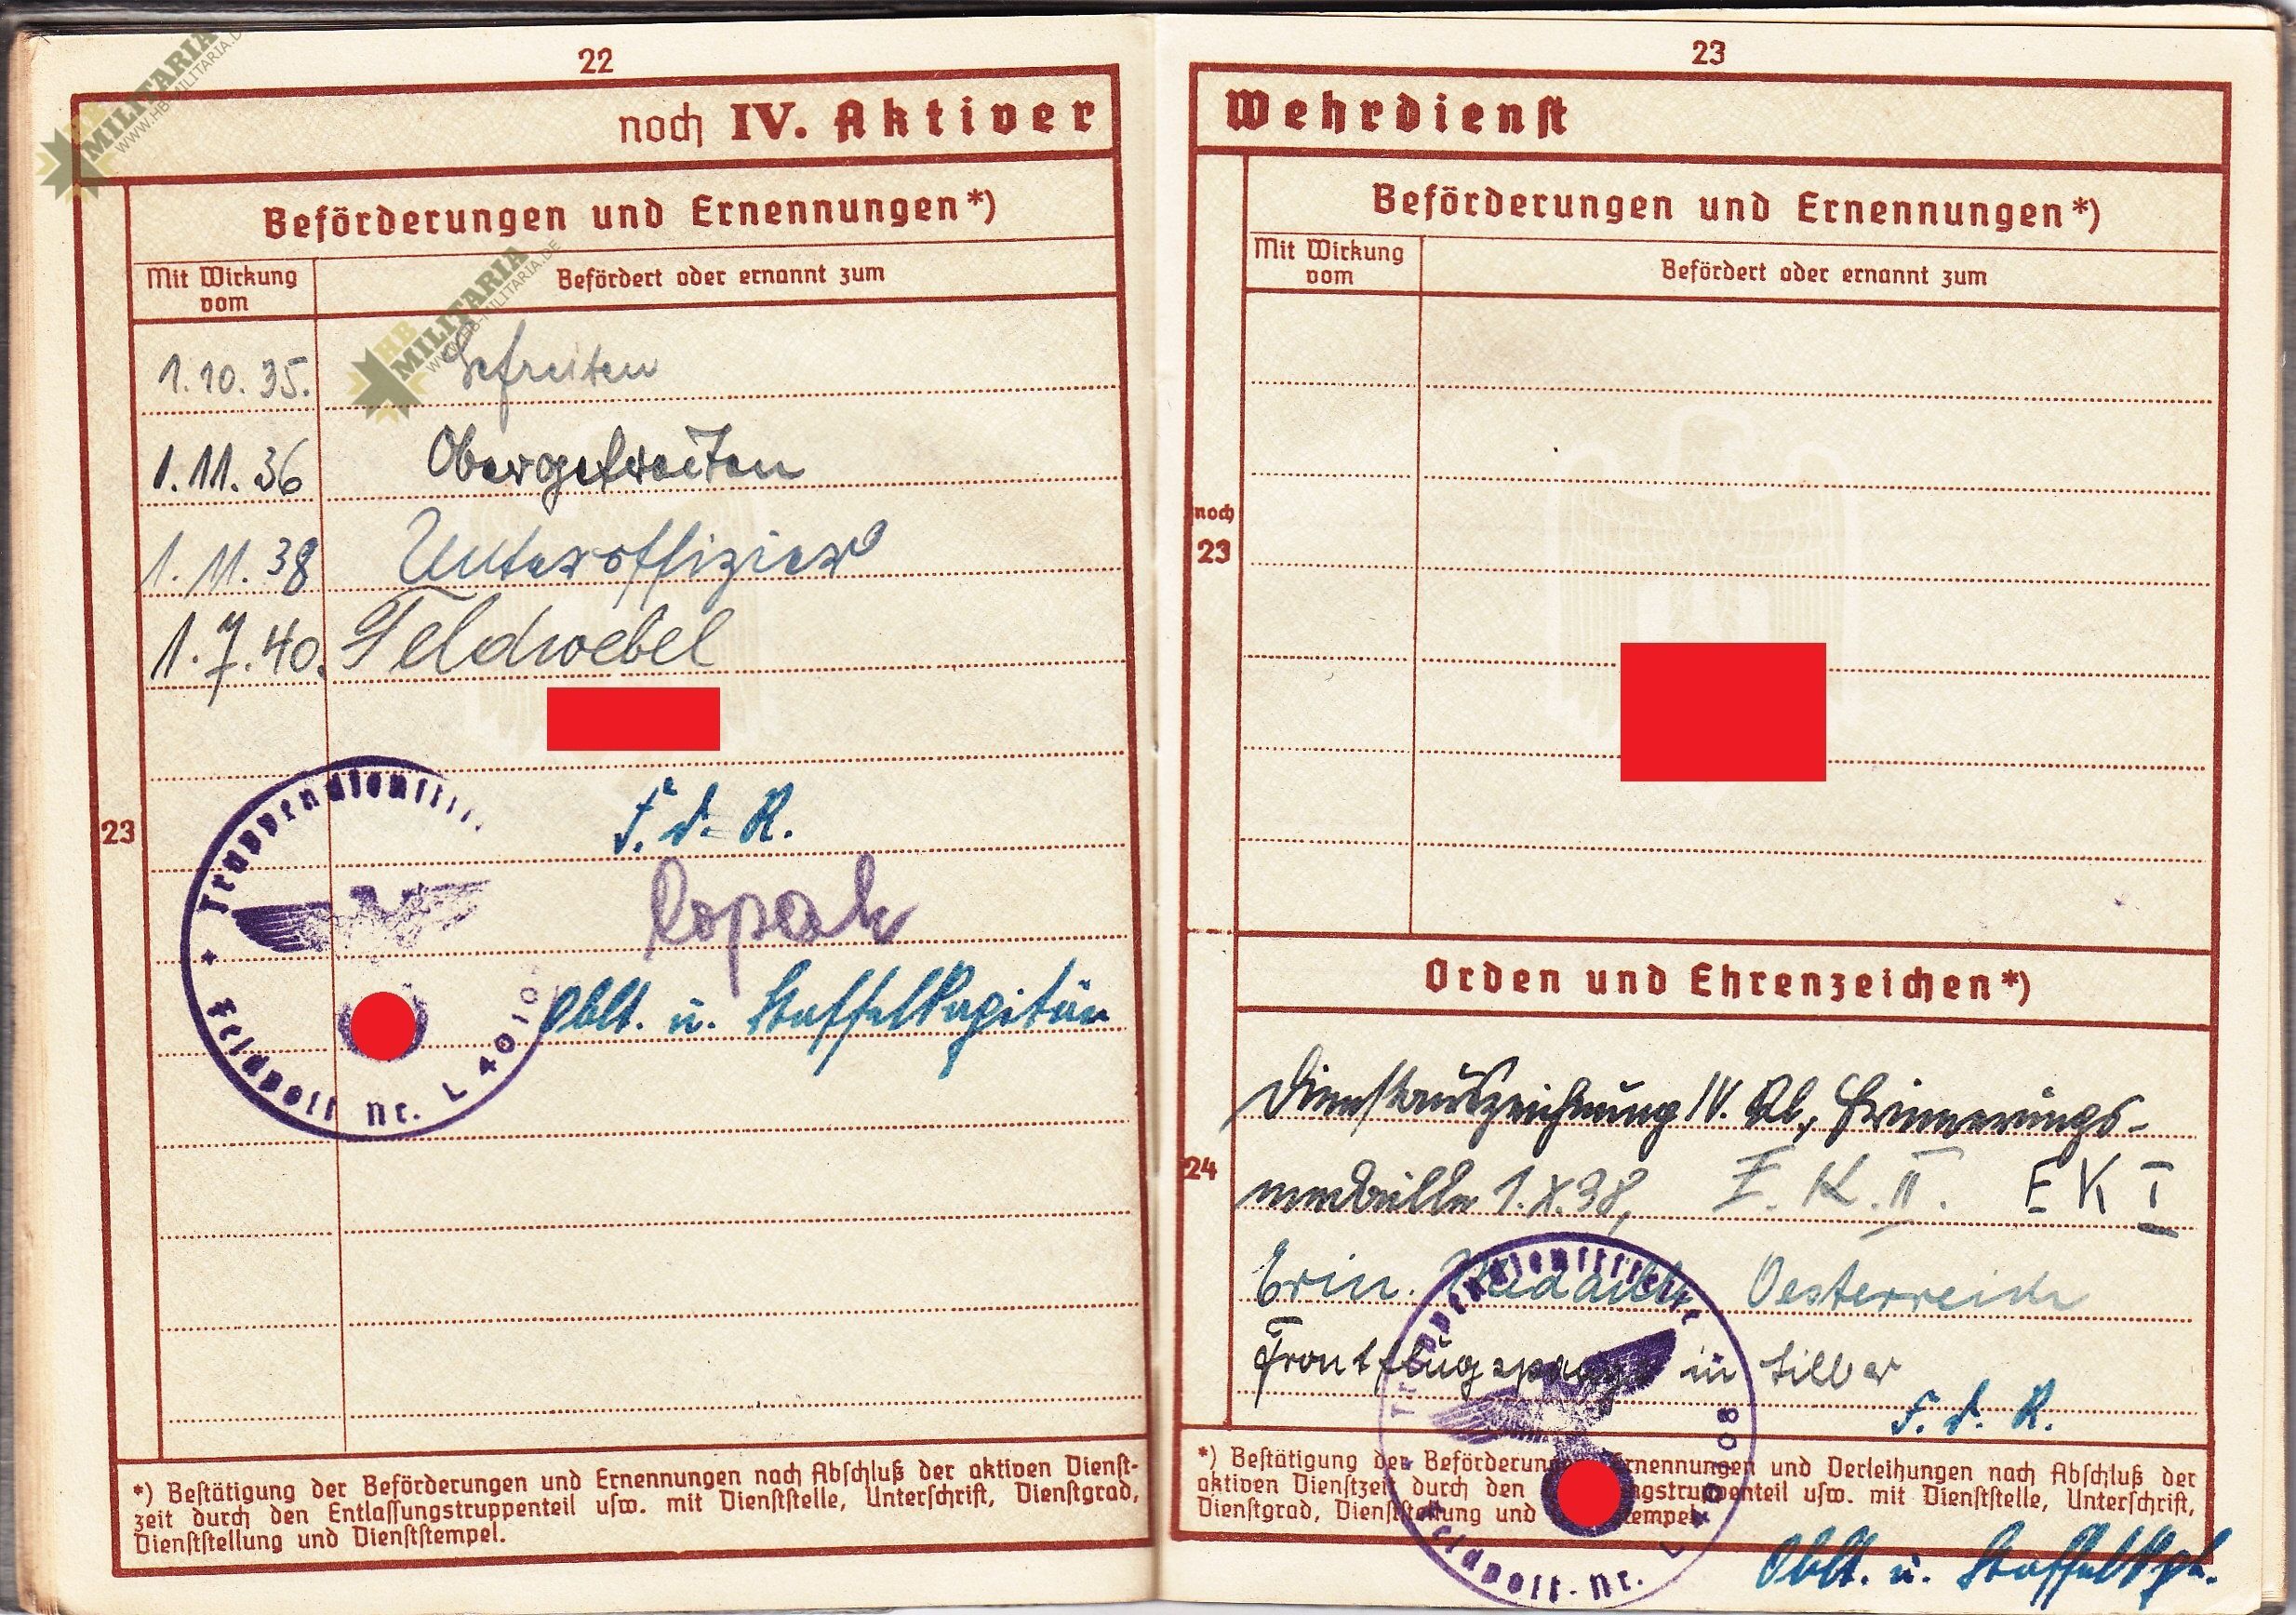 22
noch IV. Aktiver
Beförderungen und Ernennungen*)
Mit Wirkung
vom
Befördert oder ernannt zum
1.10.35. Gefreiten
1.11.36 Obergefreiten
1.11.38 Unteroffizier
1.7.40. Feldwebel
23
F. d. R.
Oblt. u. Staffelkapitän
Truppendienst
Feldpost Nr. L 4010
*) Bestätigung der Beförderungen und Ernennungen nach Abschluß der aktiven Dienst-
zeit durch den Entlassungstruppenteil usw. mit Dienststelle, Unterschrift, Dienstgrad,
Dienststellung und Dienststempel.
23
Wehrdienst
Beförderungen und Ernennungen*)
Mit Wirkung
vom
Befördert oder ernannt zum
noch
23
Orden und Ehrenzeichen*)
24
Dienstauszeichnung IV. Kl., Erinnerungs-
medaille 1.X.38, E.K.II. EK I
Erin. Medaille Oesterreich
Frontflugspange in Silber
F. d. R.
*) Bestätigung der Beförderung Ernennungen und Verleihungen nach Abschluß der
aktiven Dienstzeit durch den ngstruppenteil usw. mit Dienststelle, Unterschrift,
Dienstgrad, Dienststellung und stempel.
Feldpost-Nr. L
Oblt. u. Staffelkpt.
HB
MILITARIA
WWW.HB-MILITARIA.DE
HB
MILITARIA
WWW.HB-MILITARIA.DE